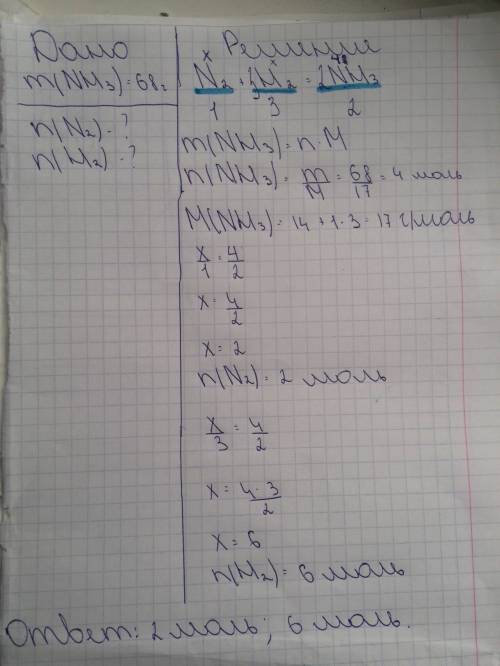 Дано
m(NH₃)=68г
n(N₂)-?
n(H₂)-?
Решение
x x
N₂+3H₂=2NH₃
1 3 2
m(NH₃)=n·M
n(NH₃)=m/M=68/17=4 моль
M(NH₃)=14+1·3=17 г/моль
x/1=4/2
x=4/2
x=2
n(N₂)=2 моль
x/3=4/2
x=4·3/2
x=6
n(H₂)=6 моль
Ответ: 2 моль; 6 моль.